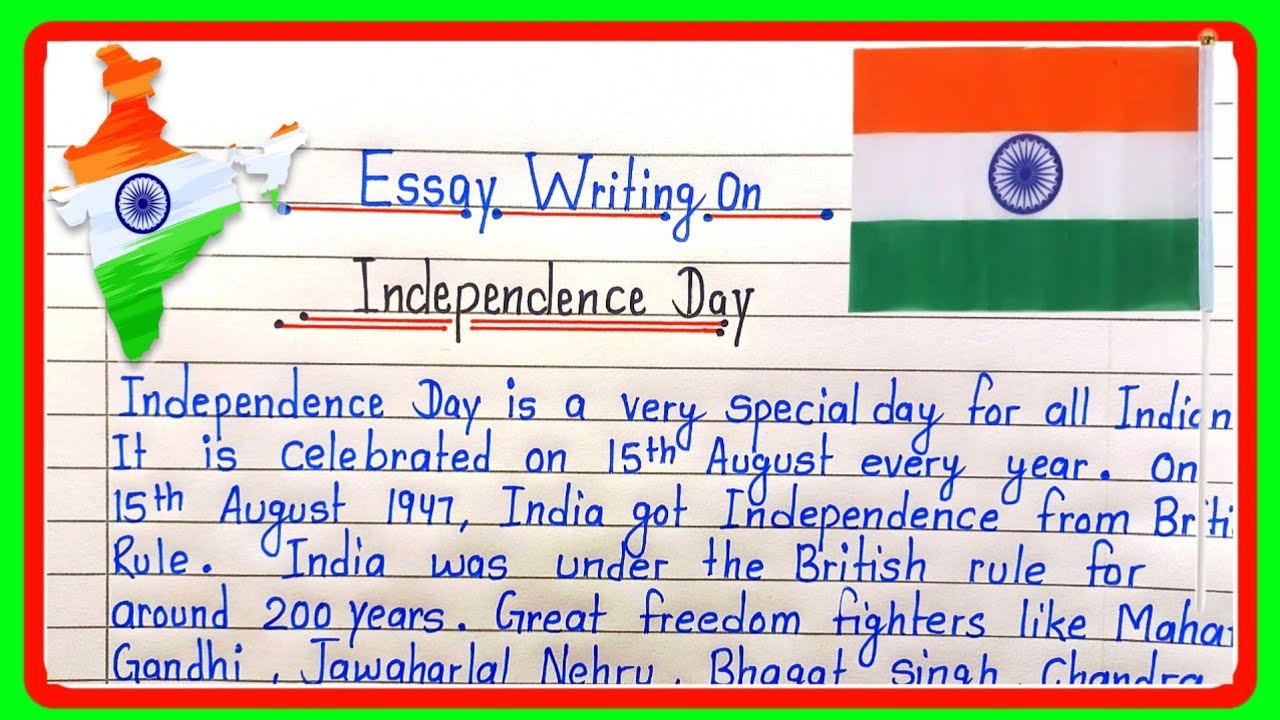 Essay Writing On
Independence Day
Independence Day is a very special day for all Indian
It is celebrated on 15th August every year. On
15th August 1947, India got Independence from Briti
Rule. India was under the British rule for
around 200 years. Great freedom fighters like Maha
Gandhi, Jawaharlal Nehru, Bhagat Singh Chandra